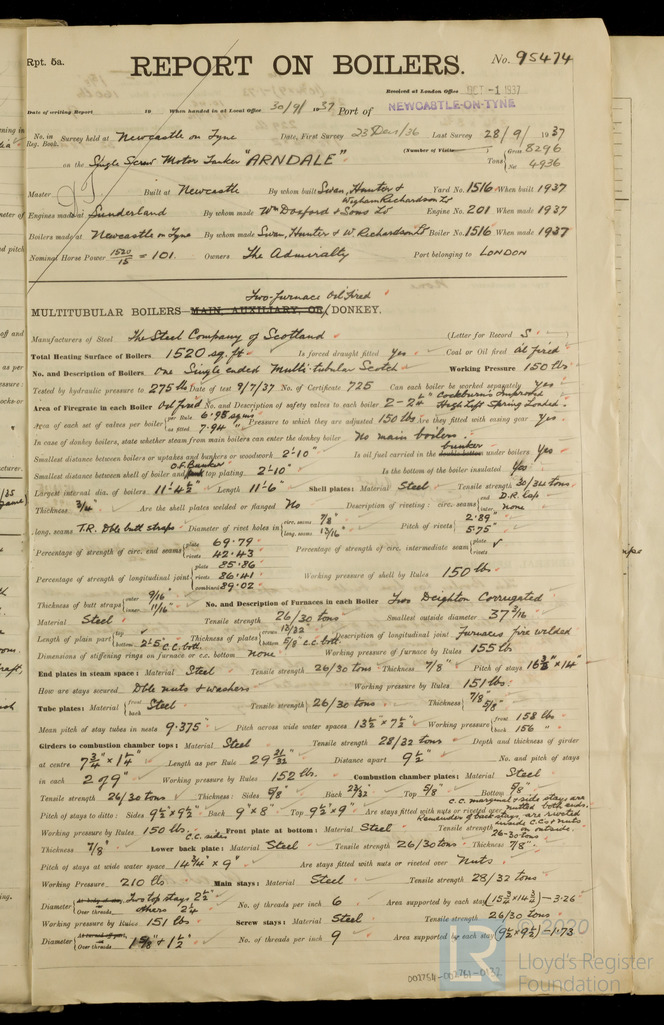 Rpt. 5a.
REPORT ON BOILERS.
No. 95474
Received at London Office OCT -1 1937
Date of writing Report 19 When handed in at Local Office 30/9/1937 Port of NEWCASTLE-ON-TYNE
No. in Reg. Book. Survey held at Newcastle on Tyne Date, First Survey 23 Dec/36 Last Survey 28/9/1937
(Number of Visits
on the Single Screw Motor Tanker "ARNDALE". Tons Gross 8296 Net 4936
Master Built at Newcastle By whom built Swan, Hunter & Wigham Richardson Ld Yard No. 1516 When built 1937
Engines made at Sunderland By whom made Wm Doxford & Sons Ld Engine No. 201 When made 1937
Boilers made at Newcastle on Tyne By whom made Swan, Hunter & W. Richardson Ld Boiler No. 1516 When made 1937
Nominal Horse Power 1520/15 = 101. Owners The Admiralty Port belonging to LONDON
Two-furnace Oil Fired
MULTITUBULAR BOILERS—MAIN, AUXILIARY, OR DONKEY.
Manufacturers of Steel The Steel Company of Scotland (Letter for Record S)
Total Heating Surface of Boilers 1520 sq. ft. Is forced draught fitted Yes Coal or Oil fired Oil fired
No. and Description of Boilers One Single ended Multi-tubular Scotch Working Pressure 150 lbs
Tested by hydraulic pressure to 275 lbs Date of test 9/7/37 No. of Certificate 725 Can each boiler be worked separately Yes
Area of Firegrate in each Boiler Oil fired No. and Description of safety valves to each boiler 2 - 2¼" Cockburns Improved High Lift Spring Loaded.
Area of each set of valves per boiler per Rule 6.95 sq ins as fitted 7.94 " Pressure to which they are adjusted 150 lbs Are they fitted with easing gear Yes.
In case of donkey boilers, state whether steam from main boilers can enter the donkey boiler No main boilers.
Smallest distance between boilers or uptakes and bunkers or woodwork 2'-10" Is oil fuel carried in the double bottom bunker under boilers Yes
Smallest distance between shell of boiler and tank top plating O.F. Bunker 2'-10" Is the bottom of the boiler insulated Yes
Largest internal dia. of boilers 11'-4½" Length 11'-6" Shell plates: Material Steel Tensile strength 30/34 tons
Thickness ¾" Are the shell plates welded or flanged No Description of riveting: circ. seams end D.R. lap inter. none
long. seams T.R. Dble butt straps Diameter of rivet holes in circ. seams 7/8" long. seams 13/16" Pitch of rivets 2.89" 5.75"
Percentage of strength of circ. end seams plate 69.79 rivets 42.43 Percentage of strength of circ. intermediate seam plate rivets
Percentage of strength of longitudinal joint plate 85.86 rivets 86.41 combined 89.02 Working pressure of shell by Rules 150 lbs
Thickness of butt straps outer 9/16" inner 11/16" No. and Description of Furnaces in each Boiler Two Deighton Corrugated
Material Steel Tensile strength 26/30 tons Smallest outside diameter 37 3/16"
Length of plain part top bottom 2'-5" C.C. bott. Thickness of plates crown 13/32" bottom 5/8" C.C. bott. Description of longitudinal joint Furnaces fire welded
Dimensions of stiffening rings on furnace or c.c. bottom None Working pressure of furnace by Rules 155 lb
End plates in steam space: Material Steel Tensile strength 26/30 tons Thickness 7/8" Pitch of stays 16⅜" × 14"
How are stays secured Dble nuts & washers Working pressure by Rules 151 lb.
Tube plates: Material front back Steel Tensile strength 26/30 tons Thickness 7/8" 5/8"
Mean pitch of stay tubes in nests 9.375" Pitch across wide water spaces 13½" × 7½" Working pressure front 158 lbs back 156 "
Girders to combustion chamber tops: Material Steel Tensile strength 28/32 tons Depth and thickness of girder
at centre 7¾" × 1¼" Length as per Rule 29 21/32" Distance apart 9½" No. and pitch of stays
in each 2 @ 9" Working pressure by Rules 152 lb. Combustion chamber plates: Material Steel
Tensile strength 26/30 tons Thickness: Sides 5/8" Back 22/32" Top 5/8" Bottom 5/8"
Pitch of stays to ditto: Sides 9½" × 9½" Back 9" × 8" Top 9½" × 9" Are stays fitted with nuts or riveted over C.C. marginal & side stays are nutted both sides. Remainder of back stays are riveted inside C.C. & nuts on outside.
Working pressure by Rules 150 lbs C.C. sides Front plate at bottom: Material Steel Tensile strength 26-30 tons
Thickness 7/8" Lower back plate: Material Steel Tensile strength 26/30 tons Thickness 7/8"
Pitch of stays at wide water space 14¾" × 9" Are stays fitted with nuts or riveted over Nuts
Working Pressure 210 lbs Main stays: Material Steel Tensile strength 28/32 tons
Diameter At body of stay, Over threads Two top stays 2½" others 2¼" No. of threads per inch 6 Area supported by each stay (15¾ × 14¾) - 3.26
Working pressure by Rules 151 lbs Screw stays: Material Steel Tensile strength 26/30 tons
Diameter At turned off part, Over threads 1⅝" & 1½" No. of threads per inch 9 Area supported by each stay (9½ × 9½) - 1.73
002754-002761-0132
© 2020
LR
Lloyd's Register
Foundation